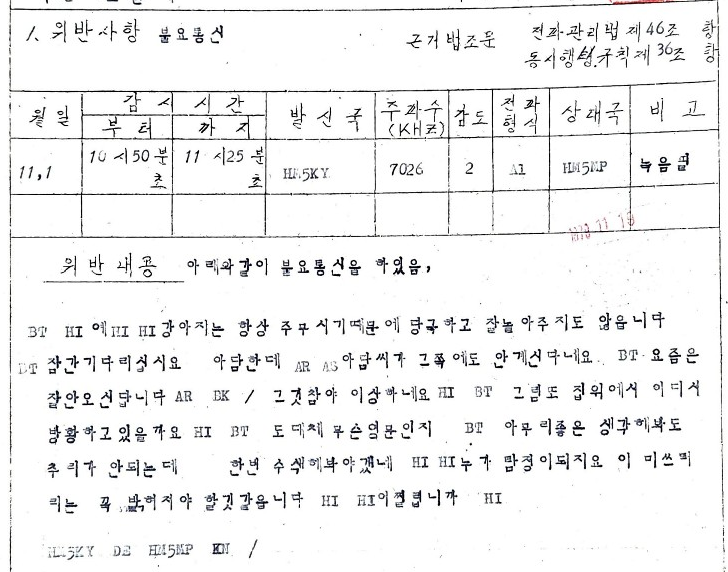 1. 위반사항 불요통신 근거법조문 전파관리법 제46조 항
동시행령.규칙제36조 항
월일 감시시간 발신국 주파수 (KHz) 감도 전파형식 상대국 비고
부터 까지
11,1 10시50분 초 11시25분 초 HM5KY 7026 2 A1 HM5MP 녹음필
위반내용 아래와같이 불요통신을 하였음,
BT HI 에HI HI강아지는 항상 주무시기때문에 당국하고 잘놀아주지도 않읍니다
BT 잠간기다리십시요 아담한데 AR AS아담씨가 그쪽에도 안계신다네요 BT 요즘은
잘안오신답니다 AR BK / 그것참야 이상하네요 HI BT 그럼또 집위에서 어디서
방황하고있을까요 HI BT 도대체 무슨영문인지 BT 아무리좋은 생각해봐도
추리가 안되는데 한번 수색해봐야겠네 HI HI누가 탐정이되지요 이 미쓰테
리는 꼭 밝혀져야 할것같읍니다 HI HI어쩔렵니까 HI
HM5KY DE HM5MP KN /